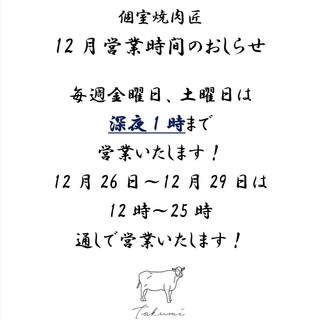 個室焼肉匠
12月営業時間のおしらせ
毎週金曜日、土曜日は
深夜1時まで
営業いたします！
12月26日～12月29日は
12時～25時
通しで営業いたします！
Takumi